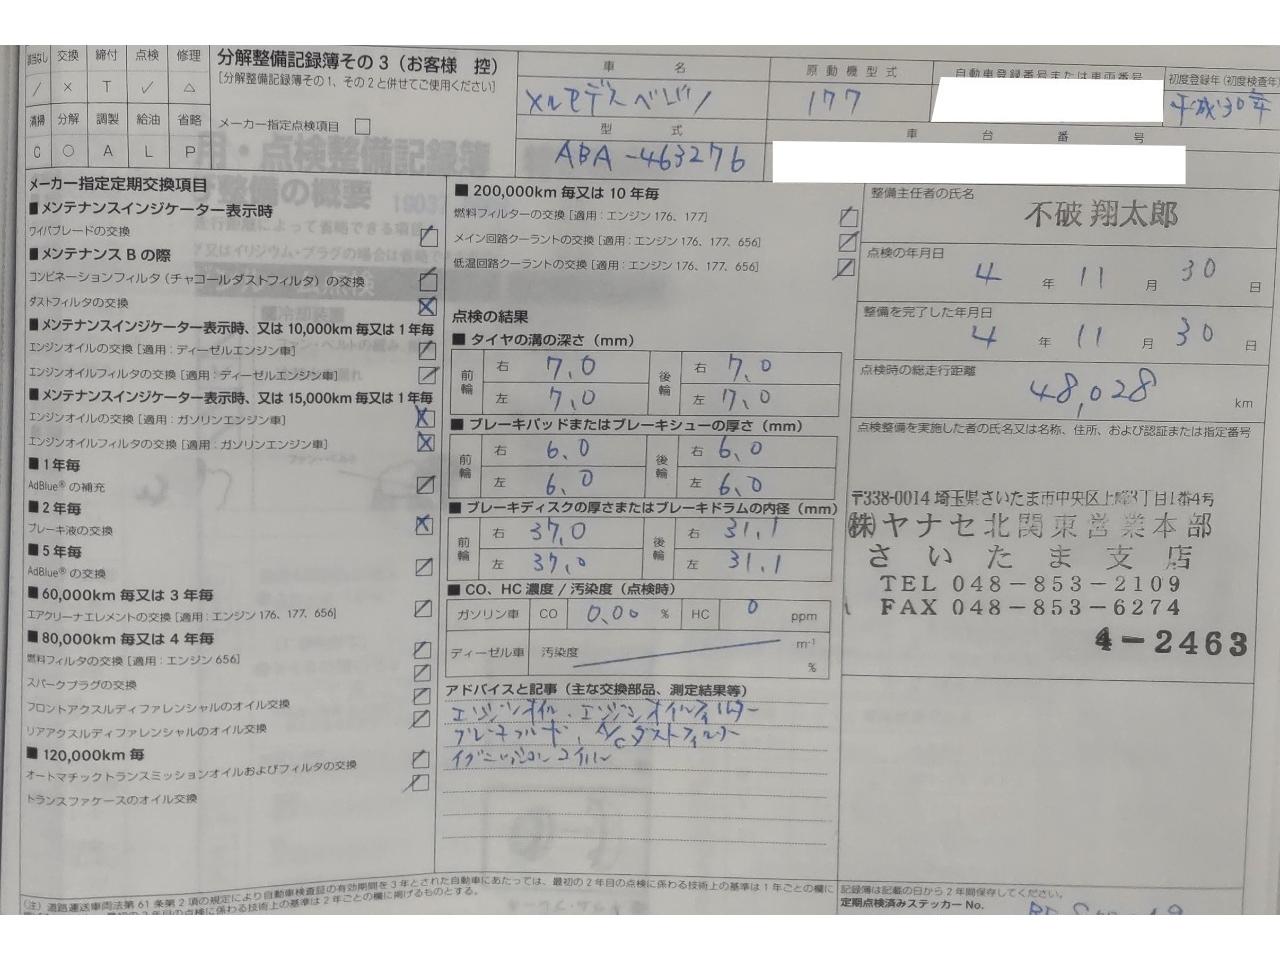 該当なし 交換 締付 点検 修理
/ × T ✓ △
清掃 分解 調製 給油 省略
C ○ A L P
分解整備記録簿その3（お客様 控）
[分解整備記録簿その1、その2と併せてご使用ください]
メーカー指定点検項目 □
車 名
メルセデスベンツ
原動機型式
177
自動車登録番号または車両番号
初度登録年(初度検査年)
平成30年
型 式
ABA-463276
車 台 番 号
メーカー指定定期交換項目
■メンテナンスインジケーター表示時
ワイパブレードの交換
■メンテナンスBの際
コンビネーションフィルタ（チャコールダストフィルタ）の交換
ダストフィルタの交換
■メンテナンスインジケーター表示時、又は10,000km毎又は1年毎
エンジンオイルの交換［適用：ディーゼルエンジン車］
エンジンオイルフィルタの交換［適用：ディーゼルエンジン車］
■メンテナンスインジケーター表示時、又は15,000km毎又は1年毎
エンジンオイルの交換［適用：ガソリンエンジン車］
エンジンオイルフィルタの交換［適用：ガソリンエンジン車］
■1年毎
AdBlue®の補充
■2年毎
ブレーキ液の交換
■5年毎
AdBlue®の交換
■60,000km毎又は3年毎
エアクリーナエレメントの交換［適用：エンジン176、177、656］
■80,000km毎又は4年毎
燃料フィルタの交換［適用：エンジン656］
スパークプラグの交換
フロントアクスルディファレンシャルのオイル交換
リアアクスルディファレンシャルのオイル交換
■120,000km毎
オートマチックトランスミッションオイルおよびフィルタの交換
トランスファケースのオイル交換
■200,000km毎又は10年毎
燃料フィルターの交換［適用：エンジン176、177］
メイン回路クーラントの交換［適用：エンジン176、177、656］
低温回路クーラントの交換［適用：エンジン176、177、656］
点検の結果
■タイヤの溝の深さ（mm）
前輪 右 7.0 後輪 右 7.0
左 7.0 左 7.0
■ブレーキパッドまたはブレーキシューの厚さ（mm）
前輪 右 6.0 後輪 右 6.0
左 6.0 左 6.0
■ブレーキディスクの厚さまたはブレーキドラムの内径（mm）
前輪 右 37.0 後輪 右 31.1
左 37.0 左 31.1
■CO、HC濃度/汚染度（点検時）
ガソリン車 CO 0.00 % HC 0 ppm
ディーゼル車 汚染度 m-1
%
アドバイスと記事（主な交換部品、測定結果等）
エンジンオイル、エンジンオイルフィルター
ブレーキフルード、A/Cダストフィルター
イグニッションコイル
整備主任者の氏名
不破 翔太郎
点検の年月日
4 年 11 月 30 日
整備を完了した年月日
4 年 11 月 30 日
点検時の総走行距離
48,028 km
点検整備を実施した者の氏名又は名称、住所、および認証または指定番号
〒338-0014 埼玉県さいたま市中央区上峰3丁目1番4号
㈱ヤナセ北関東営業本部
さいたま支店
TEL 048-853-2109
FAX 048-853-6274
4-2463
(注) 道路運送車両法第61条第2項の規定により自動車検査証の有効期間を3年とされた自動車にあたっては、最初の2年目の点検に係わる技術上の基準は1年ごとの欄に
最初の2年目の点検に係わる技術上の基準は2年ごとの欄に掲げるものとする。
記録簿は記載の日から2年間保存してください。
定期点検済みステッカーNo.